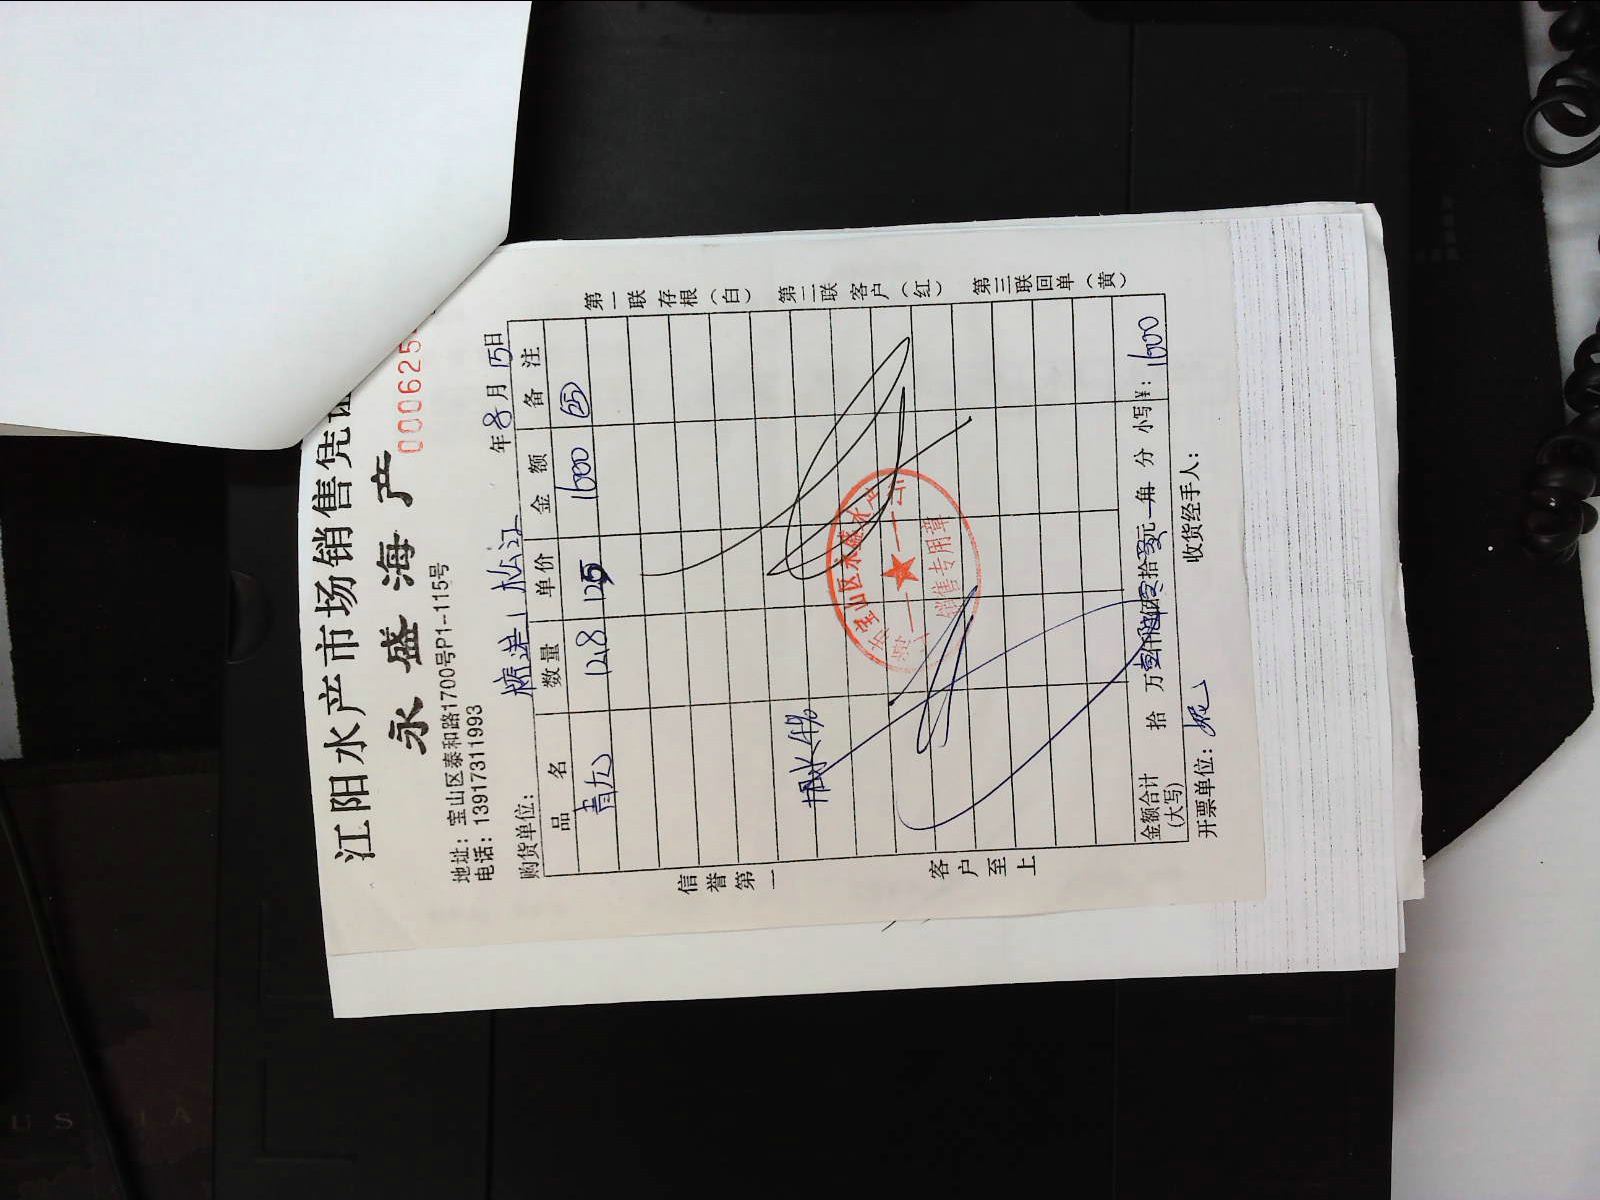 江阳水产市场销售凭证
永盛海产
000625
地址：宝山区泰和路1700号P1-115号
电话：13917311993
年8月15日
购货单位： 松江
品名 数量 单价 金额 备注
青九 12.8 125 1600 25
扣水4%
宝山区永盛水产
销售专用章
金额合计(大写) 拾 万 壹仟陆佰零拾零元 角 分 小写¥：1600
开票单位： 收货经手人：
信誉第一
客户至上
第一联存根(白)
第二联客户(红)
第三联回单(黄)